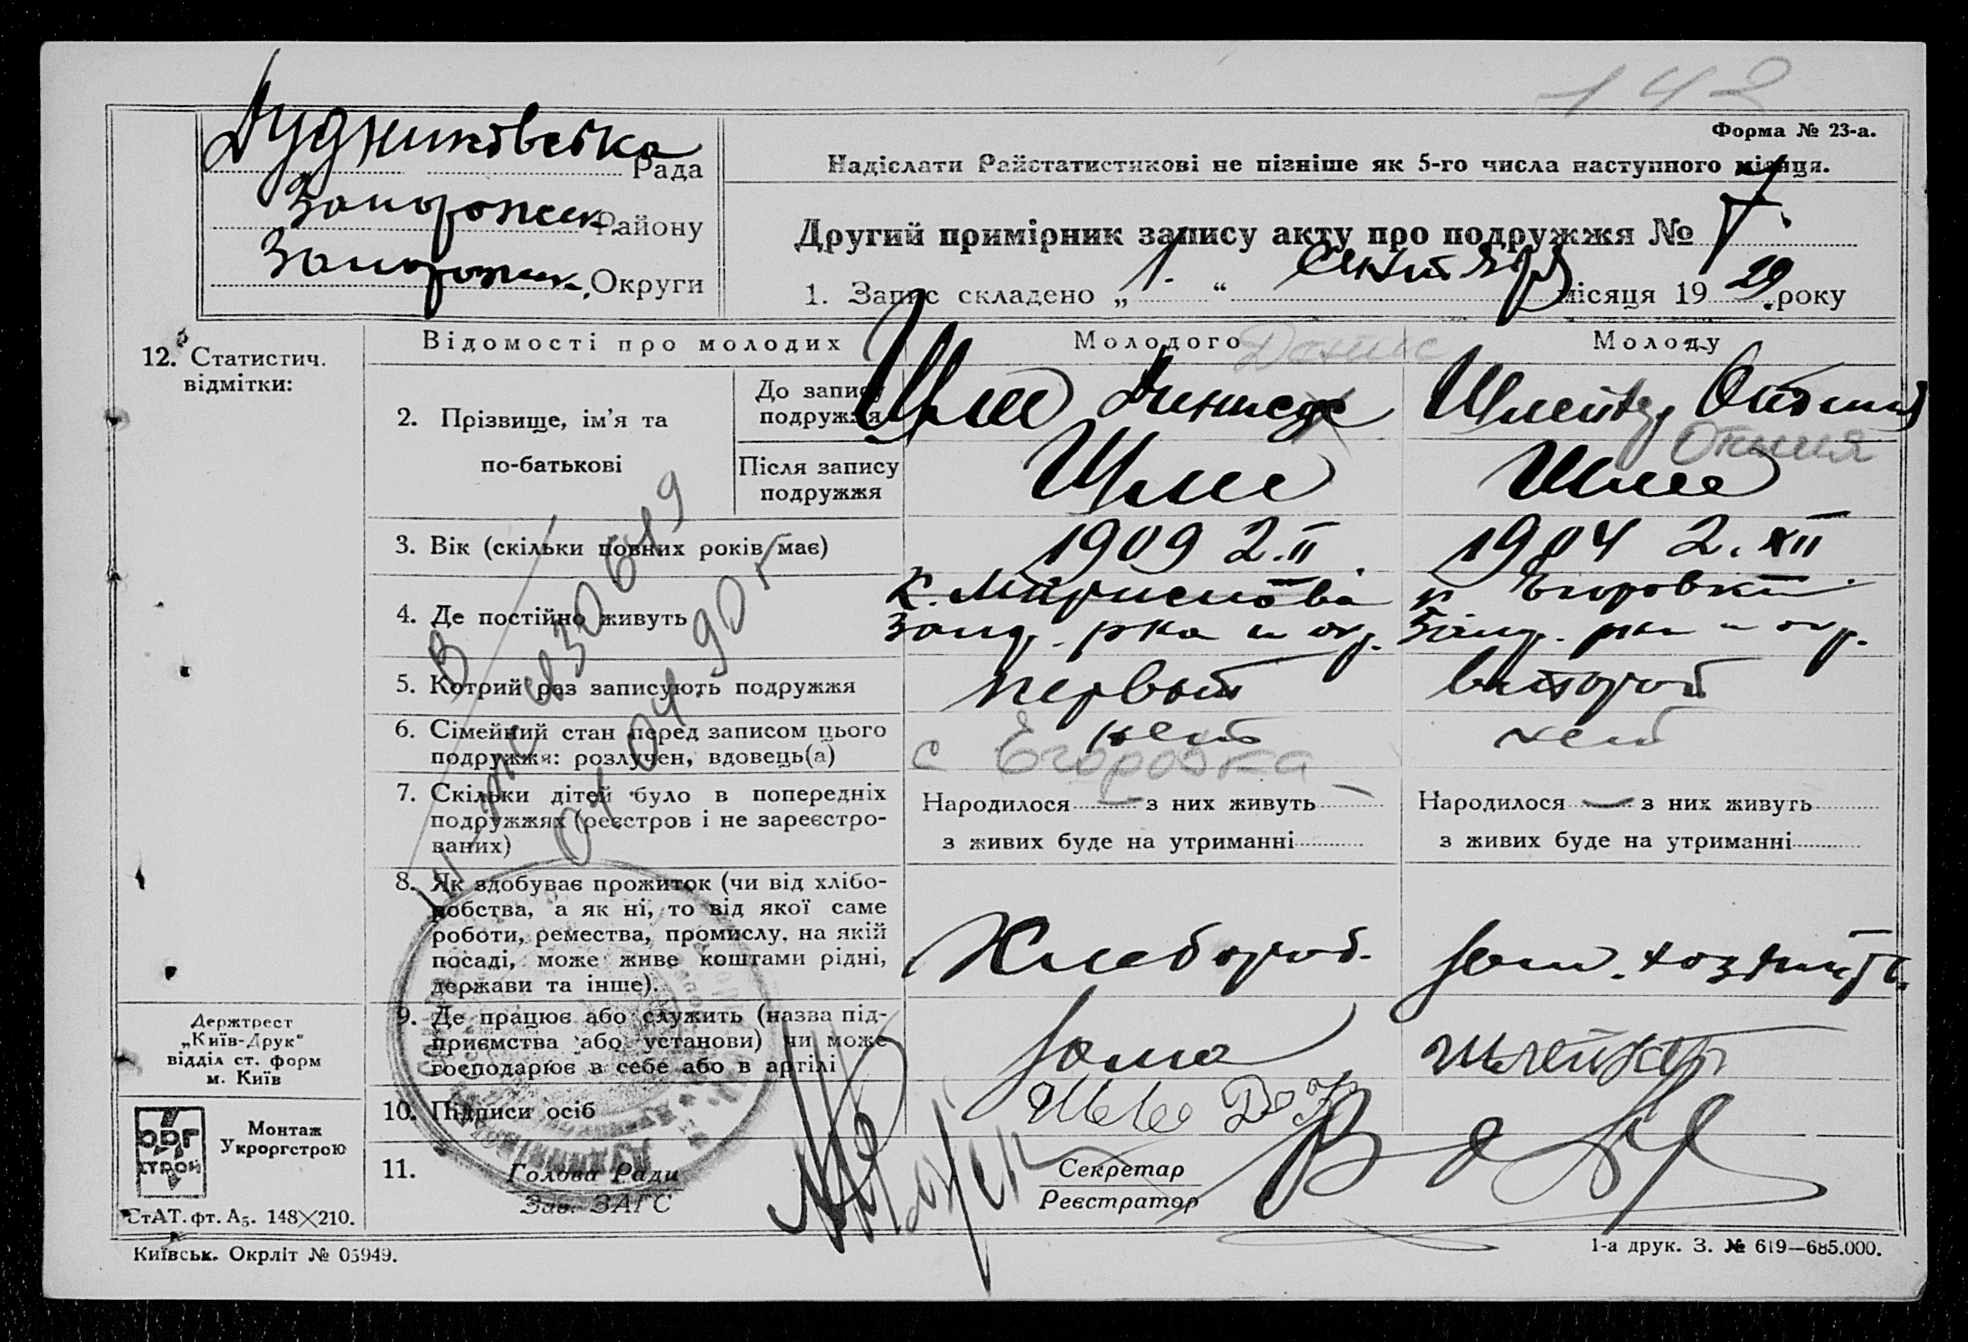 142
Форма № 23-а.
Рада
Запорожск. Району
Запорожск. Округи
Надіслати Райстатистикові не пізніше як 5-го числа наступного місяця.
Другий примірник запису акту про подружжя № 7.
1. Запис складено „ 1. “ сентября місяця 19 29. року
12. Статистич.
відмітки:
Відомості про молодих
Молодого
Молоду
2. Прізвище, ім’я та
по-батькові
До запису
подружжя
Шле
Шлейкер
Після запису
подружжя
Шле
Шле
3. Вік (скільки повних років має)
1909 2.II
1904 2.XII
4. Де постійно живуть
Запор. р-на и окр.
Егоровка
Запор. р-на и окр.
5. Котрий раз записують подружжя
первый
второй
6. Сімейний стан перед записом цього
подружжя: розлучен, вдовець(а)
нет
нет
с Егоровка
7. Скільки дітей було в попередніх
подружжях (реєстров і не зареєстро-
ваних)
Народилося — з них живуть —
з живих буде на утриманні
Народилося — з них живуть
з живих буде на утриманні
8. Як здобуває прожиток (чи від хлібо-
робства, а як ні, то від якої саме
роботи, ремества, промислу, на якій
посаді, може живе коштами рідні,
держави та інше).
Хлебороб.
дом. хозяйств.
9. Де працює або служить (назва під-
приємства або установи) чи може
господарює в себе або в артілі
дома
10. Підписи осіб
11.
Голова Ради
Зав. ЗАГС
Секретар
Реєстратор
Держтрест
„Київ-Друк“
відділ ст. форм
м. Київ
ОРГ
СТРОЙ
Монтаж
Укроргстрою
СтАТ. фт. А5. 148×210.
Київськ. Окрліт № 05949.
1-а друк. З. № 619—685.000.